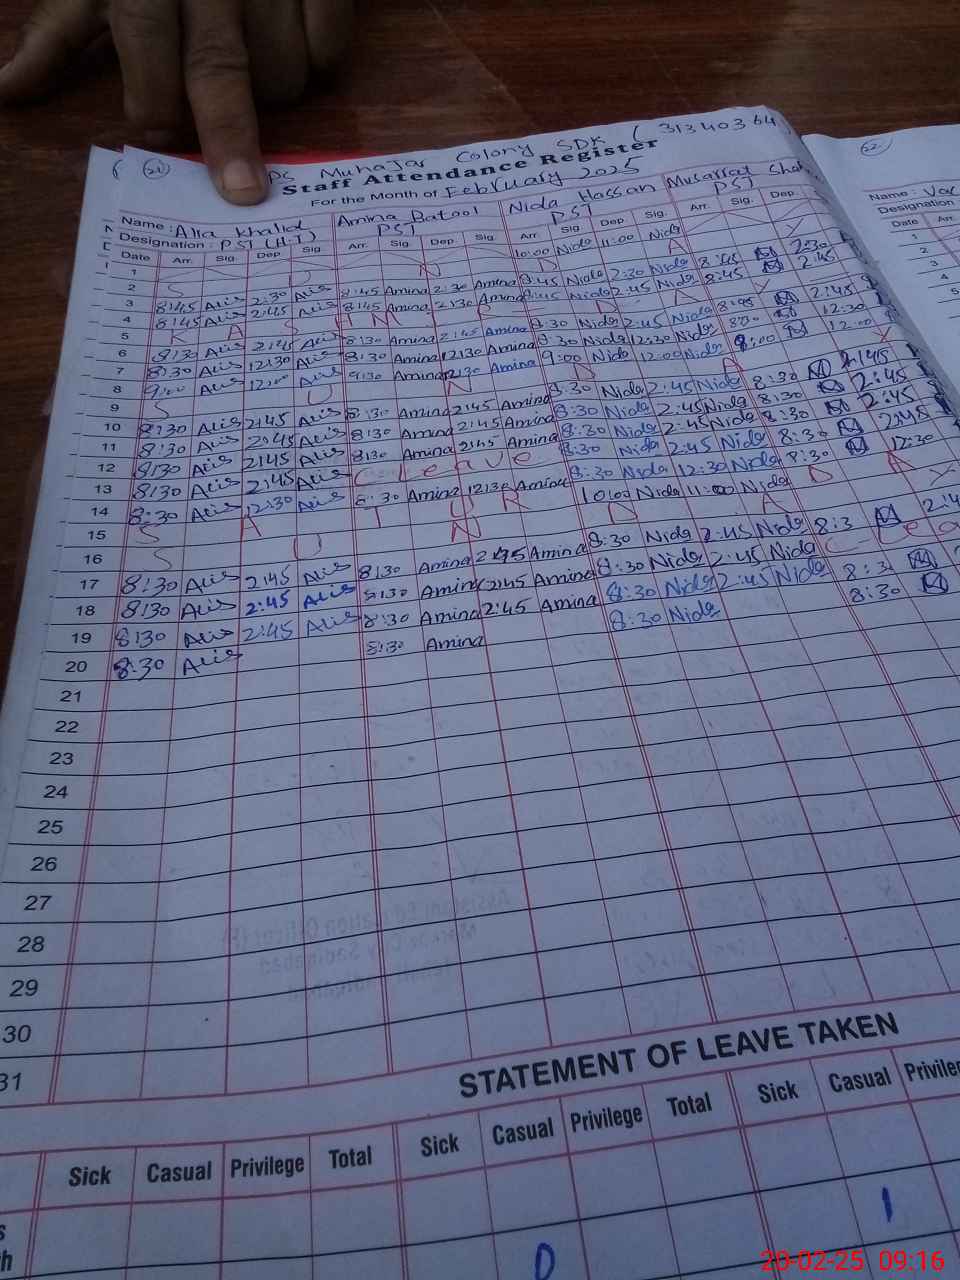 PS Muhajar Colony SDK ( 31340364
Staff Attendance Register
For the Month of February 2025
Name: Alia Khalid Amina Batool Nida Hassan Musarrat
Designation: PST (H.T) PST PST PST
Date Arr. Sig. Dep. Sig. Arr. Sig. Dep. Sig. Arr. Sig. Dep. Sig. Arr. Sig. Dep.
1 10:00 Nida 11:00 Nida
2 S U N D A Y
3 8:45 Alia 2:30 Alia 8:45 Amina 2:30 Amina 8:45 Nida 2:30 Nida 8:45 2:30
4 8:45 Alia 2:45 Alia 8:45 Amina 2:30 Amina 8:45 Nida 2:45 Nida 8:45 2:45
5 K A S H M I R D A Y
6 8:30 Alia 2:45 Alia 8:30 Amina 2:45 Amina 8:30 Nida 2:45 Nida 2:45
7 8:30 Alia 12:30 Alia 8:30 Amina 12:30 Amina 8:30 Nida 12:30 Nida 8:30 12:30
8 9:00 12:00 9:30 Amina 12:30 Amina 9:00 Nida 12:00 Nida 8:00 12:00
9 S U N D A Y
10 8:30 Alia 2:45 Alia 8:30 Amina 2:45 Amina 8:30 Nida 2:45 Nida 8:30 2:45
11 8:30 Alia 2:45 Alia 8:30 Amina 2:45 Amina 8:30 Nida 2:45 Nida 8:30 2:45
12 8:30 Alia 2:45 Alia 8:30 Amina 2:45 Amina 8:30 Nida 2:45 Nida 8:30 2:45
13 8:30 Alia 2:45 Alia C Leave 8:30 Nida 2:45 Nida 8:30 2:45
14 8:30 Alia 12:30 Alia 8:30 Amina 12:30 Amina 8:30 Nida 12:30 Nida 8:30 12:30
15 S A T U R D A Y 10:00 Nida 11:00 Nida
16 S U N D A Y
17 8:30 Alia 2:45 Alia 8:30 Amina 2:45 Amina 8:30 Nida 2:45 Nida 8:3
18 8:30 Alia 2:45 Alia 8:30 Amina 2:45 Amina 8:30 Nida 2:45 Nida C Lea
19 8:30 Alia 2:45 Alia 8:30 Amina 2:45 Amina 8:30 Nida 2:45 Nida 8:3
20 8:30 Alia 8:30 Amina 8:30 Nida 8:30
21
22
23
24
25
26
27
28
29
30
31
STATEMENT OF LEAVE TAKEN
Sick Casual Privilege Total Sick Casual Privilege Total Sick Casual
0 1
22
Name:
Designation
Date Arr.
1
2
3
4
5
20-02-25 09:16